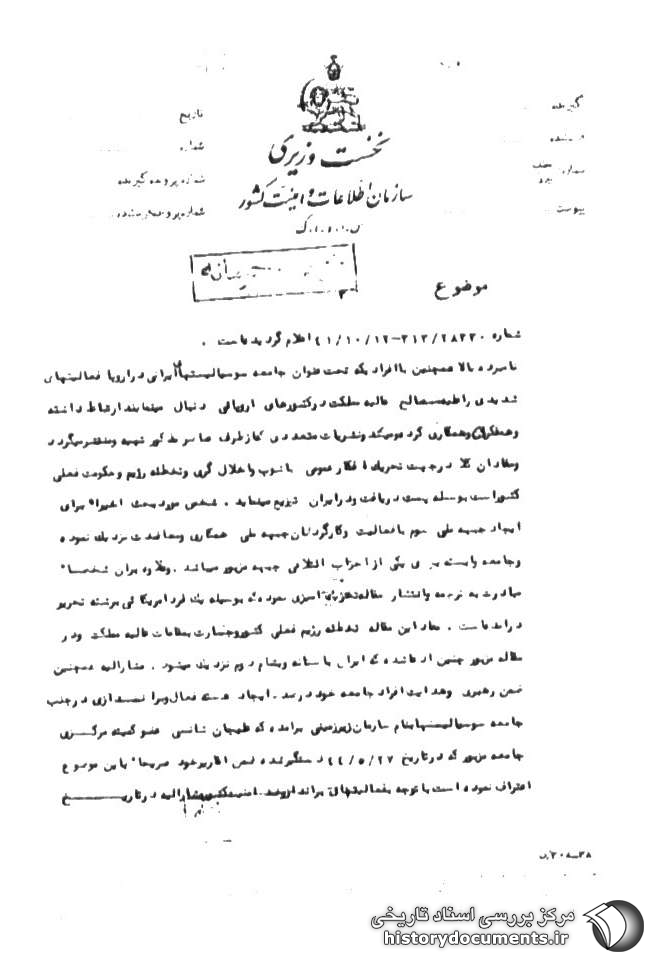 گیرنده
تاریخ
شماره
شماره
شماره پرونده گیرنده
پیوست
نخست وزیری
سازمان اطلاعات و امنیت کشور
س.ا.و.ا.ک
محرمانه
موضوع
شماره ۳۱۲/۲۸۲۳۰-۴۱/۱۰/۱۲ اعلام گردیده است .
نامبرده بالا همچنین با افرادیکه تحت عنوان جامعه سوسیالیستهای ایرانی در اروپا فعالیتهای
شدیدی را علیه مصالح عالیه مملکت در کشورهای اروپائی دنبال مینمایند ارتباط داشته
و همفکری و همکاری کرده و میکند و نشریات متعددی که از طرف عناصر مذکور تهیه و منتشر میگردد
و مفاد آن کلا در جهت تحریک افکار عمومی با نوب و اخلال گری و تخطئه رژیم و حکومت فعلی
کشور است بوسیله پست دریافت و در ایران توزیع مینماید . شخص مورد بحث اخیرا" برای
ایجاد جبهه ملی سوم با فعالیت و کارگردانان جبهه ملی همکاری و معاضدت نزدیک نموده
و جامعه وابسته به یکی از احزاب ائتلافی جبهه مزبور میباشد . و علاوه بر آن شخصا"
مبادرت به ترجمه و انتشار مقاله آمیزی نموده که بوسیله یک فرد امریکائی برشته تحریر
درآمده است . مفاد این مقاله تخطئه رژیم فعلی کشور و جسارت بمقامات عالیه مملکت و در
مقاله مزبور چنین ادعا شده که ایران با ستانه ویتنام دوم نزدیک میشود . مشارالیه همچنین
ضمن رهبری و هدایت افراد جامعه خود درصدد ایجاد دسته فعال و براندازی در جنب
جامعه سوسیالیستها بنام سازمان زیرزمینی برآمده که شانسی عضو کمیته مرکزی
جامعه مزبور که در تاریخ ۴۴/۵/۲۷ دستگیر شده ضمن اقاریر خود صریحا" باین موضوع
اعتراف نموده است با توجه بفعالیتهای مشارالیه در تاریخ
۳۸-۲۰۸/د
مرکز بررسی اسناد تاریخی
historydocuments.ir